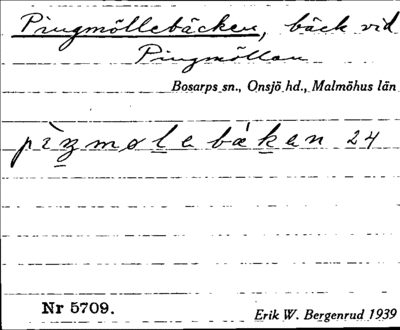 Pingmöllebäcken, bäck vid
Pingmöllan
Bosarps sn., Onsjö hd., Malmöhus län
pìŋmøla bák an 24
Nr 5709.
Erik W. Bergenrud 1939